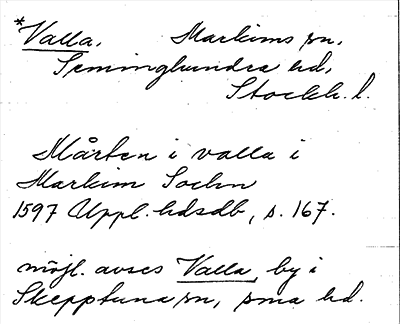 *Valla. Markims sn.
Seminghundra hd.
Stockh. l.
Mårten i valla i
Markim Sochn
1597 Uppl. hdsdb, s. 167.
möjl. avses Valla, by i
Skepptuna sn, sma hd.